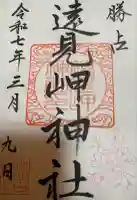 勝上
遠見岬神社
令和七年三月
九日